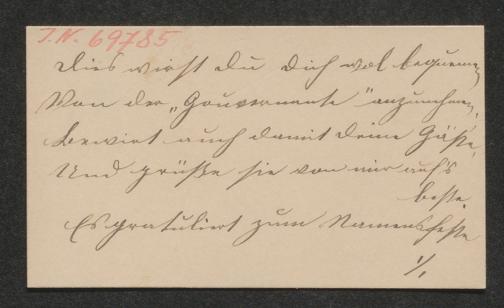 I.N. 69785
Dies wirst du dich wol bequemen
Von der „Gouvernante“ anzunehmen,
Bewirt auch damit deine Gäste
Und grüße sie von mir auf's
beste.
Es gratuliert zum Namensfeste